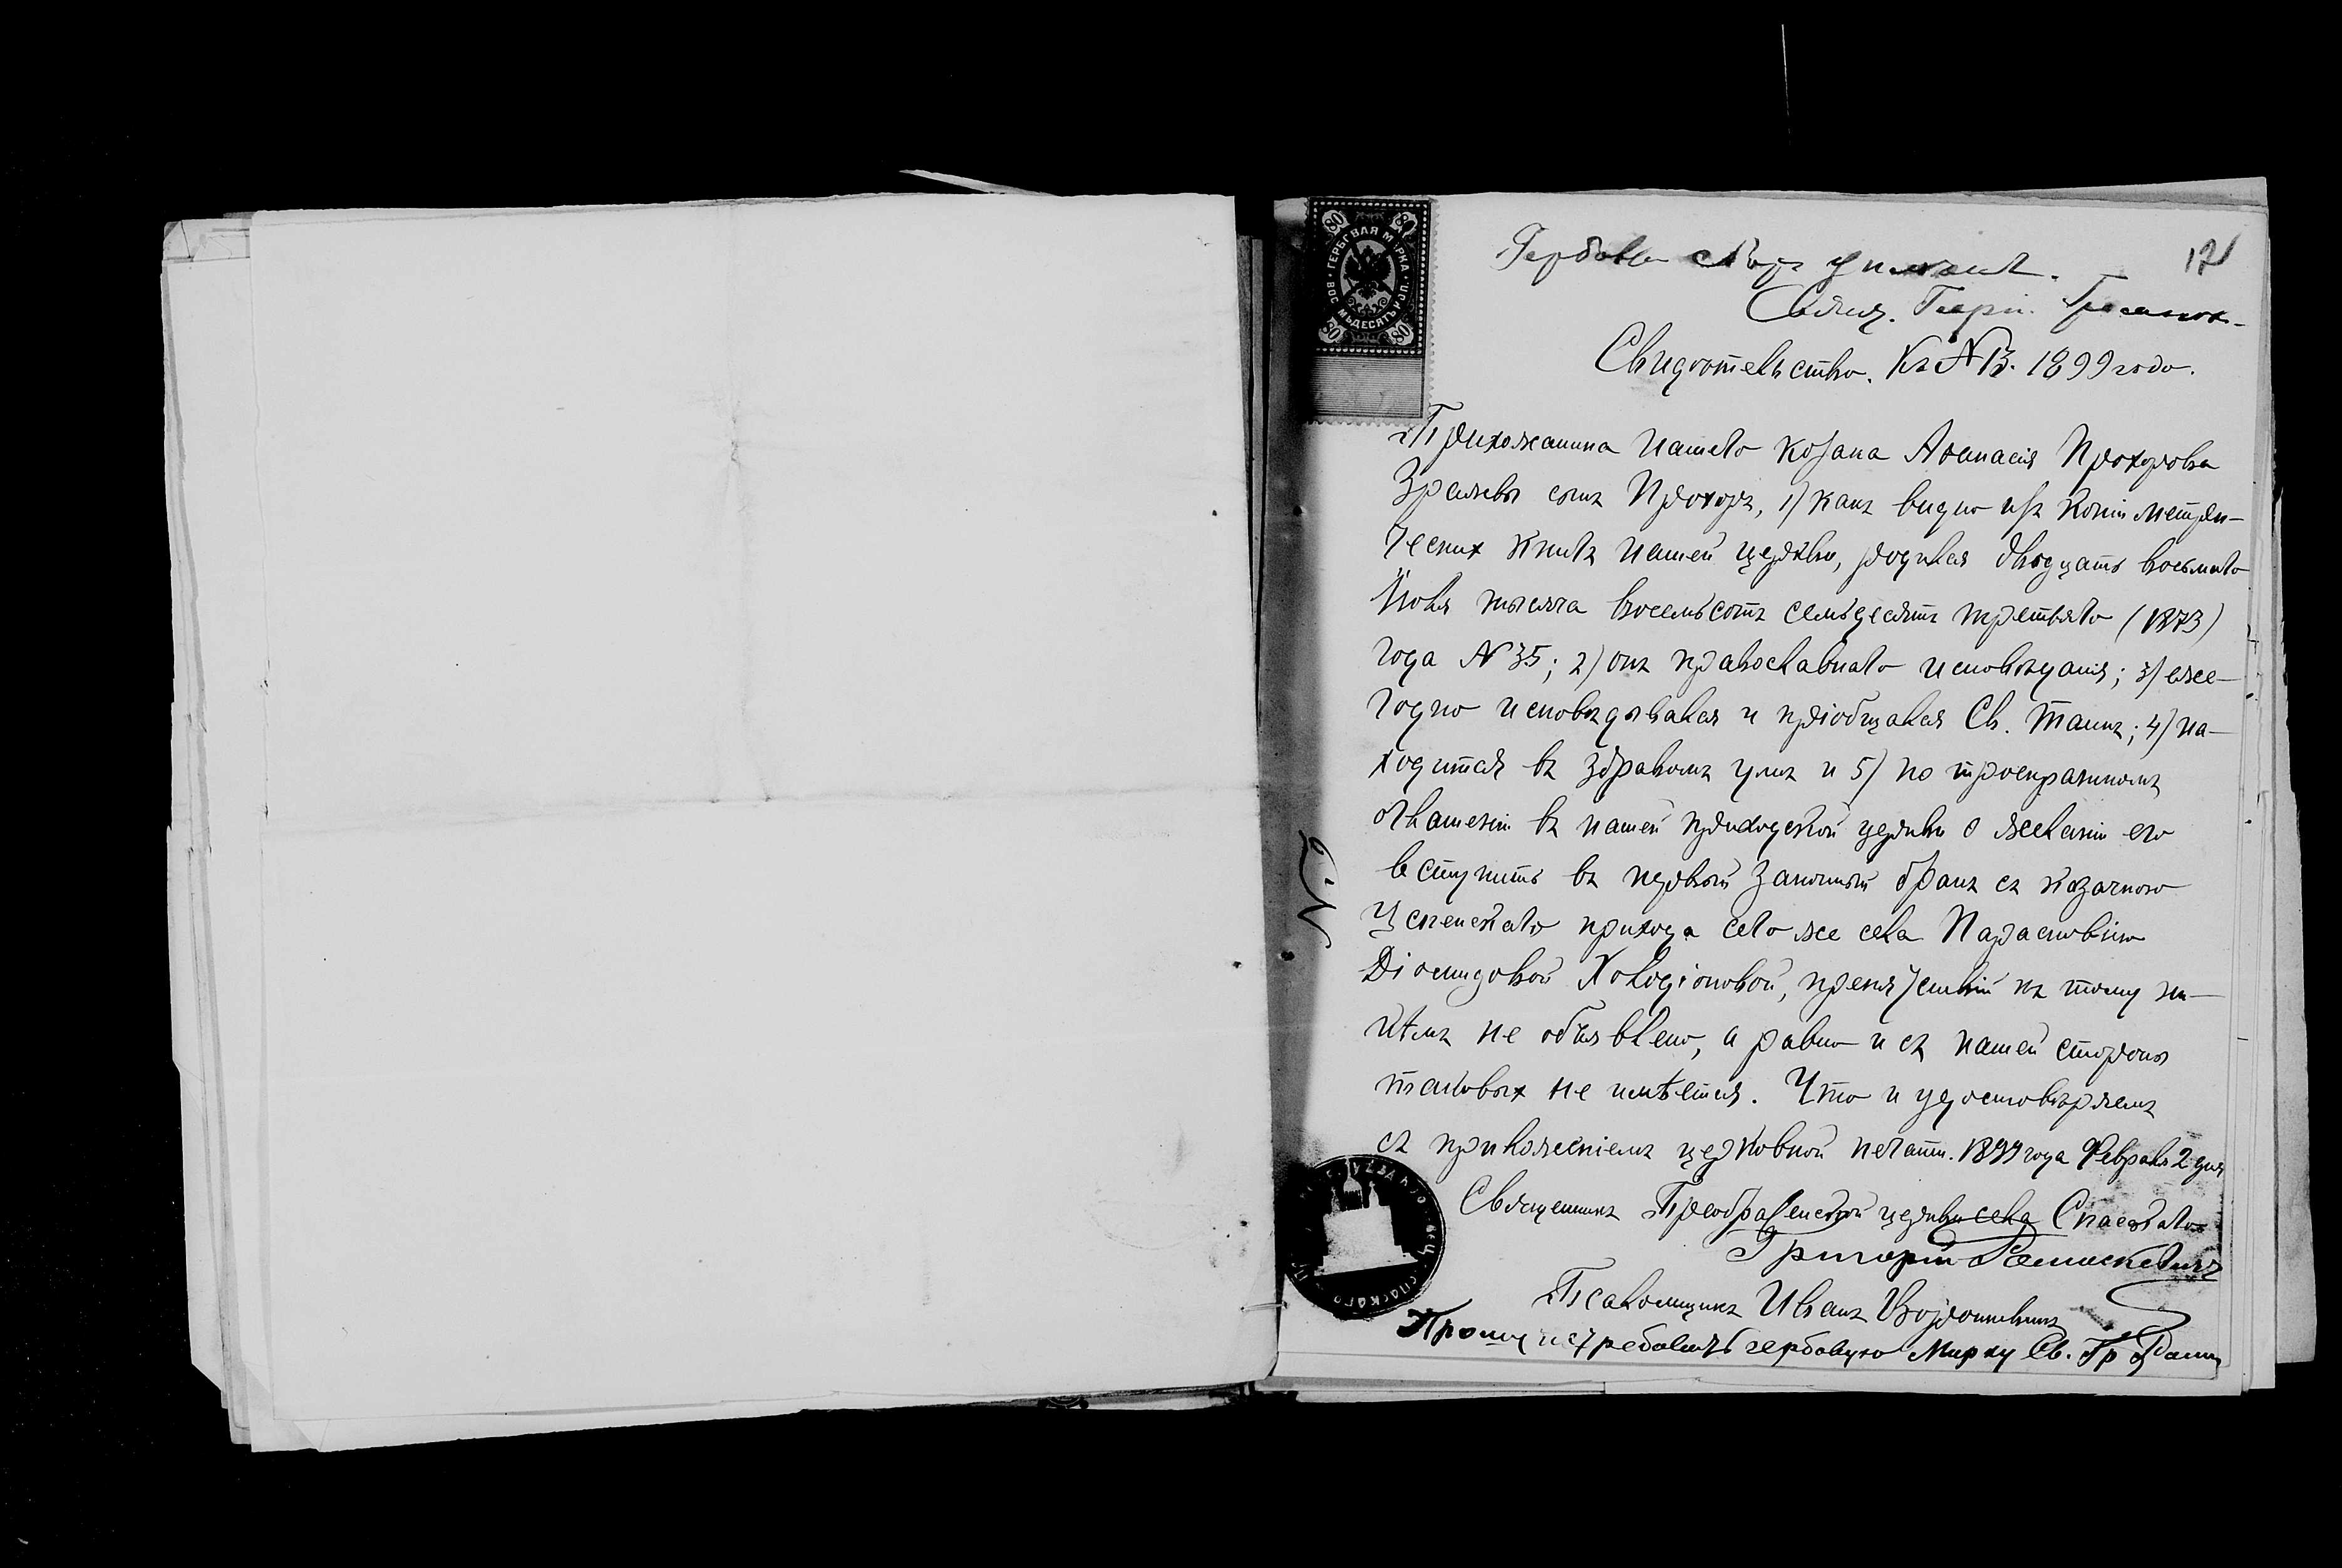 12
Гербовый сборъ уплаченъ.
Свящ.
Свидѣтельство. Къ № 13. 1899 года.
Прихожанина нашего козака Аѳанасія Прохорова
сынъ Прохоръ, 1) какъ видно изъ копіи метри-
ческихъ книгъ нашей церкви, родился двадцать восьмаго
Іюля тысяча восемьсотъ семьдесятъ третьяго (1873)
года № 35; 2) онъ православнаго исповѣданія; 3) еже-
годно исповѣдывался и пріобщался Св. Таинъ; 4) на-
ходится въ здравомъ умѣ и 5) по троекратномъ
оглашеніи въ нашей приходской церкви о желаніи его
вступить въ первый законный бракъ съ козачкою
Успенскаго прихода сего же села Параскевіею
Діомидовой Холодіоновой, препятствій къ тому ни-
кѣмъ не объявлено, а равно и съ нашей стороны
таковыхъ не имѣется. Что и удостовѣряемъ
съ приложеніемъ церковной печати. 1899 года Февраля 2 дня
Священникъ Преображенской церкви села Спасскаго
Григорій
Псаломщикъ Иванъ
Прошу истребовать гербовую марку Св. Гр.
ГЕРБОВАЯ МАРКА
ВОСЕМЬДЕСЯТЪ КОП.
80 80
80 80
СПАСКАГО